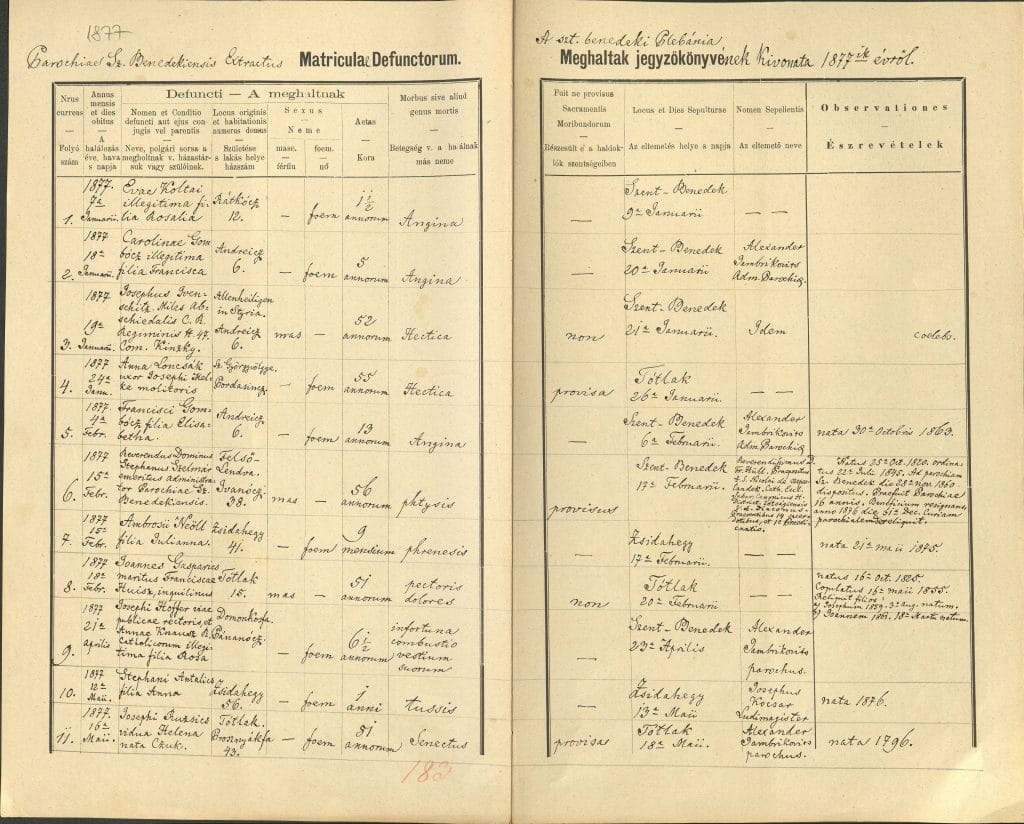 1877
Parochiae Sz. Benedekiensis Extraitus Matriculae Defunctorum.
A szt. benedeki Plebánia
Meghaltak jegyzőkönyvének Kivonata 1877 ik évről.
Nrus
curreas
—
Folyó
szám
Annus
mensis
et dies
obitus
—
A
halálozás
éve, hava
s napja
Defuncti — A meghaltnak
Nomen et Conditio
defuncti aut ejus con-
jugis vel parentis
—
Neve, polgári sorsa a
megholtnak v. házastár-
suk vagy szülőinek.
Locus originis
et habitationis
numerus domus
—
Születése
s lakás helye
házszám
Sexus
Neme
masc.
—
férfiu
foem.
—
nő
Aetas
—
Kora
Morbus sive aliud
genus mortis
—
Betegség v. a halálnak
más neme
Fuit ne provisus
Sacramentis
Moribundorum
—
Részesült é a haldok-
lók szentségeiben
Locus et Dies Sepulturae
—
Az eltemelés helye s napja
Nomen Sepelientis
—
Az eltemető neve
Observationes
—
Észrevételek
1.
1877.
7a
Januarii.
Evae Koltai
illegitima fi-
lia Rosalia
Rátkócz
12.
—
foem
1 1/2
annorum
Angina
—
Szent-Benedek
9a Januarii
— —
2.
1877
18a
Januarii.
Carolinae Gom-
bócz illegitima
filia Francisca
Andreicz
6.
—
foem
5
annorum
Angina
—
Szent-Benedek
20a Januarii
Alexander
Jambrikovits
Adm. Parochiae
3.
1877
19a
Januarii.
Josephus Iven-
schitz. Miles Ab-
schiedalis C. R.
Regiminis N. 47.
Com. Kinzky.
Allenheiligen
in Styria.
Andreicz
6.
mas
—
52
annorum
Hectica
non
Szent-Benedek
21a Januarii.
Idem
coelebs.
4.
1877
24a
Janu.
Anna Loncsák
uxor Josephi Mel-
ke molitoris
Sz. Györgyvölgye.
Pordasincz
—
foem
55
annorum
Hectica
provisa
Tótlak
26a Januarii.
— —
5.
1877.
4a
Febr.
Francisci Gom-
bócz filia Elisa-
betha.
Andreicz
6.
—
foem
13
annorum
Angina
—
Szent-Benedek
6a Februarii.
Alexander
Jambrikovits
Adm. Parochiae
nata 30a Octobris 1863.
6.
1877
15a
Febr.
Reverendus Dominus
Stephanus Szelmár
emeritus administra-
tor Parochiae Sz.
Benedekiensis.
Felső-
Lendva.
Ivanócz.
38.
mas
—
56
annorum
phtysis
provisus
Szent-Benedek
17a Februarii.
Natus 25a Oct. 1820. ordina-
tus 22a Julii 1845. Ad parochiam
Sz. Benedek die 28a nov. 1860
dispositus. Praefuit Parochiae
16 annis. Beneficium resignans,
anno 1876 die 31a Dec. Curiam
parochialem reliquit.
7.
1877
15a
Febr.
Ambrosii Neöll
filia Julianna.
Zsidahegy
41.
—
foem
9
mensium
phrenesis
—
Zsidahegy
17a Februarii.
— —
nata 21a maii 1875.
8.
1877
18a
Febr.
Joannes Gasparics
maritus Franciscae
Huisz, inquilinus
Tótlak
15.
mas
—
51
annorum
pectoris
dolores
non
Tótlak
20a Februarii
— —
natus 16a Oct. 1825.
Copulatus 16a maii 1855.
Reliquit filios:
a) Josephum 1859. 3a aug. natum.
b) Joannem 1861. 18a Martii natum.
9.
1877
21a
aprilis
Josephi Hoffer viae
publicae rectoris, et
Annae Knausz R.
Catholicorum illegi-
tima filia Rosa
Domonkosfa.
Pánanócz.
—
foem
6 1/2
annorum
infortuna
combustio
vestium
suorum
—
Szent-Benedek
23a Aprilis
Alexander
Jambrikovits
parochus.
10.
1877
12a
Maii.
Stephani Antalics
filia Anna
Zsidahegy
56.
—
foem
1
anni
tussis
—
Zsidahegy
13a Maii
Josephus
Kocsar
Ludimagister
nata 1876.
11.
1877.
16a
Maii.
Josephi Ruzsics
vidua Helena
nata Czuk.
Tótlak.
Bronnyákfa
43.
—
foem
81
annorum
Senectus
provisa
Tótlak
18a Maii.
Alexander
Jambrikovits
parochus.
nata 1796.
183